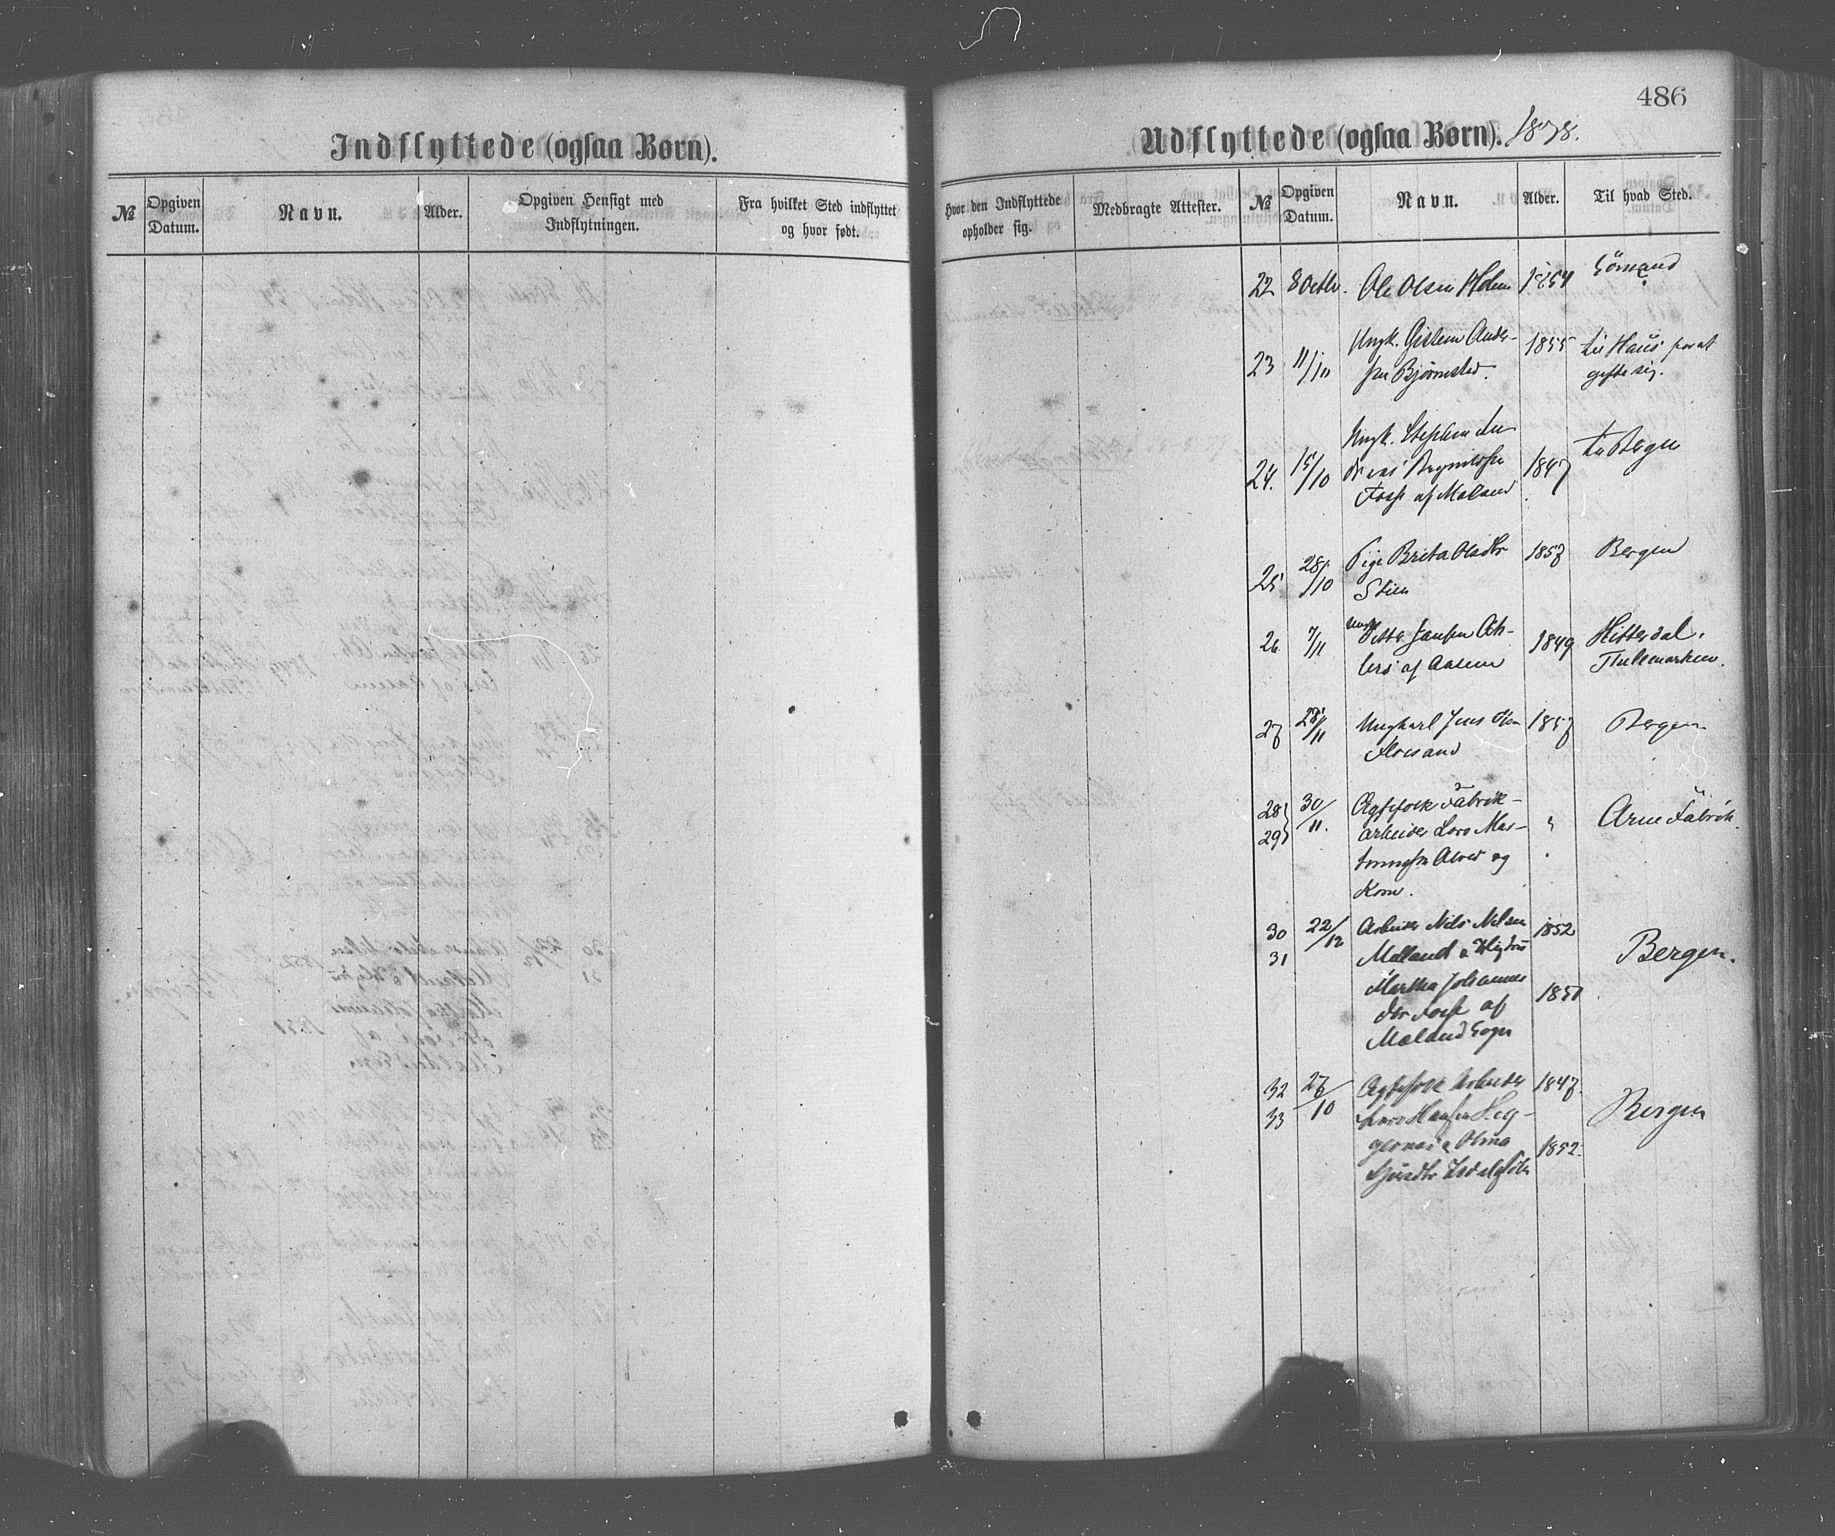 486
Indflyttede (ogsaa Børn).
№
Opgiven Datum.
Navn.
Alder.
Opgiven Hensigt med Indflytningen.
Fra hvilket Sted indflyttet og hvor født.
Udflyttede (ogsaa Børn). 1878.
Hvor den Indflyttede opholder sig.
Medbragte Attester.
№
Opgiven Datum.
Navn.
Alder.
Til hvad Sted.
22 8 Octbr. Ole Olsen Holm 1854
23 11/10 Ungk. Gislein Ander- 1855 til Haus for at
sen Bjørnestad. gifte sig.
24. 15/10 Ungk. Stephen An- 1847 til Bergen
af Mæland
25 28/10 Pige Brita Olsdtr 1857 Bergen
Stien
26 7/11 Ungk. Jansen Ah- 1849 Hitterdal.
lers af Aasem Thelemarken.
27 28/11 Ungkarl Jens Olsen 1857 Bergen
Florsand
28 30/11. Ægtefolk Fabrik- Arne Fabrik.
29 arbeider Lars Mar-
Alver og
Kone.
30 22/12 Arbeider Nils Nilsen 1852 Bergen.
31 Mæland & Hustru
Martha Johannes 1851
dtr af
Mæland Sogn
32 27/10 Ægtefolk Arbeider 1847 Bergen
33 Lars Hansen Heg-
gernæs & 1852.